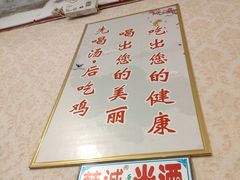 吃出您的健康
喝出您的美丽
先喝汤·后吃鸡
诚
米酒